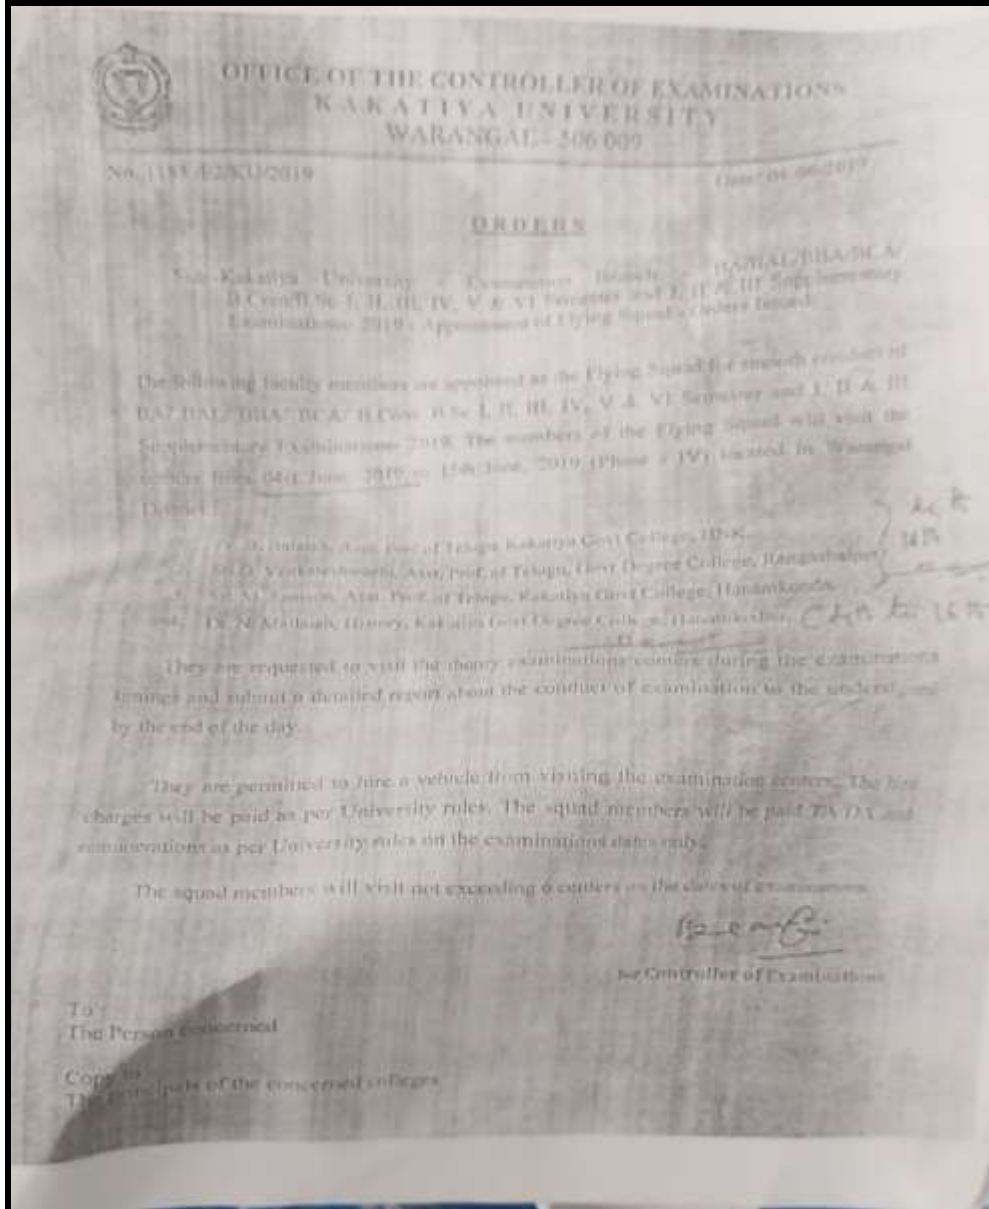 OFFICE OF THE CONTROLLER OF EXAMINATIONS
KAKATIYA UNIVERSITY
WARANGAL - 506 009
ORDERS
Sub: Kakatiya University - Examination Branch - BA/BAL/BBA/BCA/
B.Com/B.Sc I, II, III, IV, V & VI Semester and I, II & III Supplementary
Examinations 2019 - Appointment of Flying Squad - Orders Issued
The following faculty members are appointed as the Flying Squad for smooth conduct of
BA/ BAL/ BBA/ BCA/ B.Com/ B.Sc I, II, III, IV, V & VI Semester and I, II & III
Supplementary Examinations 2019. The members of the Flying Squad will visit the
centers from 04th June, 2019 to 15th June, 2019 (Phase - IV) located in Warangal
District
Asst. Prof. of Telugu, Kakatiya Govt College,
Asst. Prof. of Telugu, Govt Degree College,
Asst. Prof. of Telugu, Kakatiya Govt College, Hanamkonda
Dr. N. Mallaiah, History, Kakatiya Govt Degree College,
They are requested to visit the theory examinations centers during the examinations
timings and submit a detailed report about the conduct of examination to the undersigned
by the end of the day.
They are permitted to hire a vehicle from visiting the examination centers. The hire
charges will be paid as per University rules. The squad members will be paid TA DA and
remunerations as per University rules on the examinations dates only.
The squad members will visit not exceeding 6 centers on the dates of examinations
for Controller of Examinations
To
The Person concerned
Copy to
The Principals of the concerned colleges